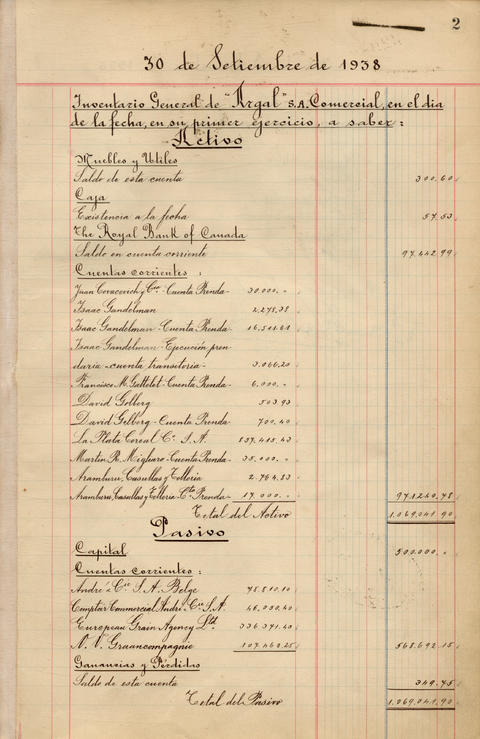 2
30 de Setiembre de 1938
Inventario General de "Argal" S.A. Comercial, en el dia
de la fecha, en su primer ejercicio, a saber:
Activo
Muebles y Utiles
Saldo de esta cuenta 300.60
Caja
Existencia a la fecha 57.53
The Royal Bank of Canada
Saldo en cuenta corriente 97.442.99
Cuentas corrientes :
Juan Covacevich y Cía - Cuenta Prenda - 30.000.-
Isaac Gandelman 2.278.38
Isaac Gandelman - Cuenta Prenda - 16.511.61
Isaac Gandelman - Ejecución pren
daria - cuenta transitoria - 3.066.20
Francisco M. Gattelet - Cuenta Prenda - 6.000.-
David Gelberg 503.93
David Gelberg - Cuenta Prenda 700.40
La Plata Cereal Cº S.A.
Martin R. Migliaro - Cuenta Prenda - 35.000.-
Aramburu, Casullas y Tolleria 2.764.83
Aramburu, Casullas y Tolleria - Cta Prenda - 17.000.- 971.240.78
Total del Activo 1.069.041.90
Pasivo
Capital 500.000.-
Cuentas corrientes :
André & Cie S.A. Belge 78.810.10
Comptoir Commercial André & Cie S.A. 46.050.40
European Grain Agency Ltd 336.371.40
N. V. Graancompagnie 107.460.25 568.692.15
Ganancias y Pérdidas
Saldo de esta cuenta 349.75
Total del Pasivo 1.069.041.90